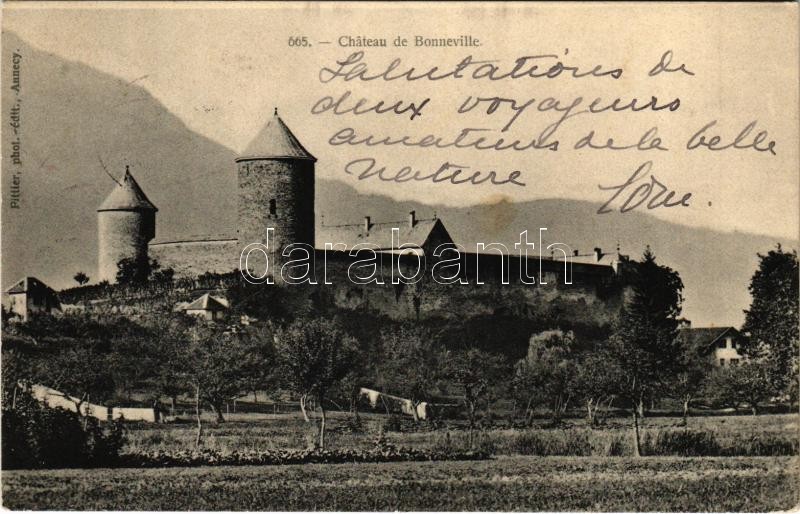 665. — Château de Bonneville.
Salutations de
deux voyageurs
amateurs de la belle
Nature
Pittier, phot.-édit., Annecy.
darabanth